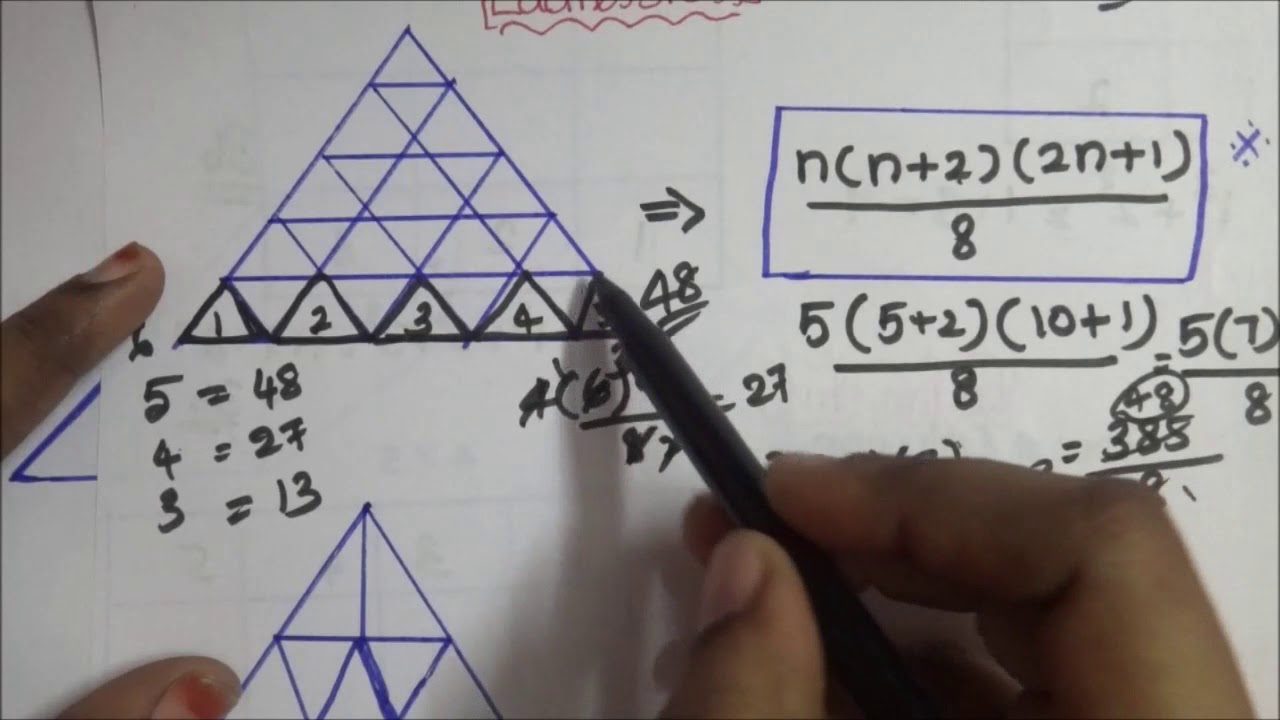 n(n+2)(2n+1)
8
⇒
48
1 2 3 4
5(5+2)(10+1)
8
= 5(7)
8
5 = 48
4 = 27
3 = 13
4(6)
8
= 27
48
= 385
8